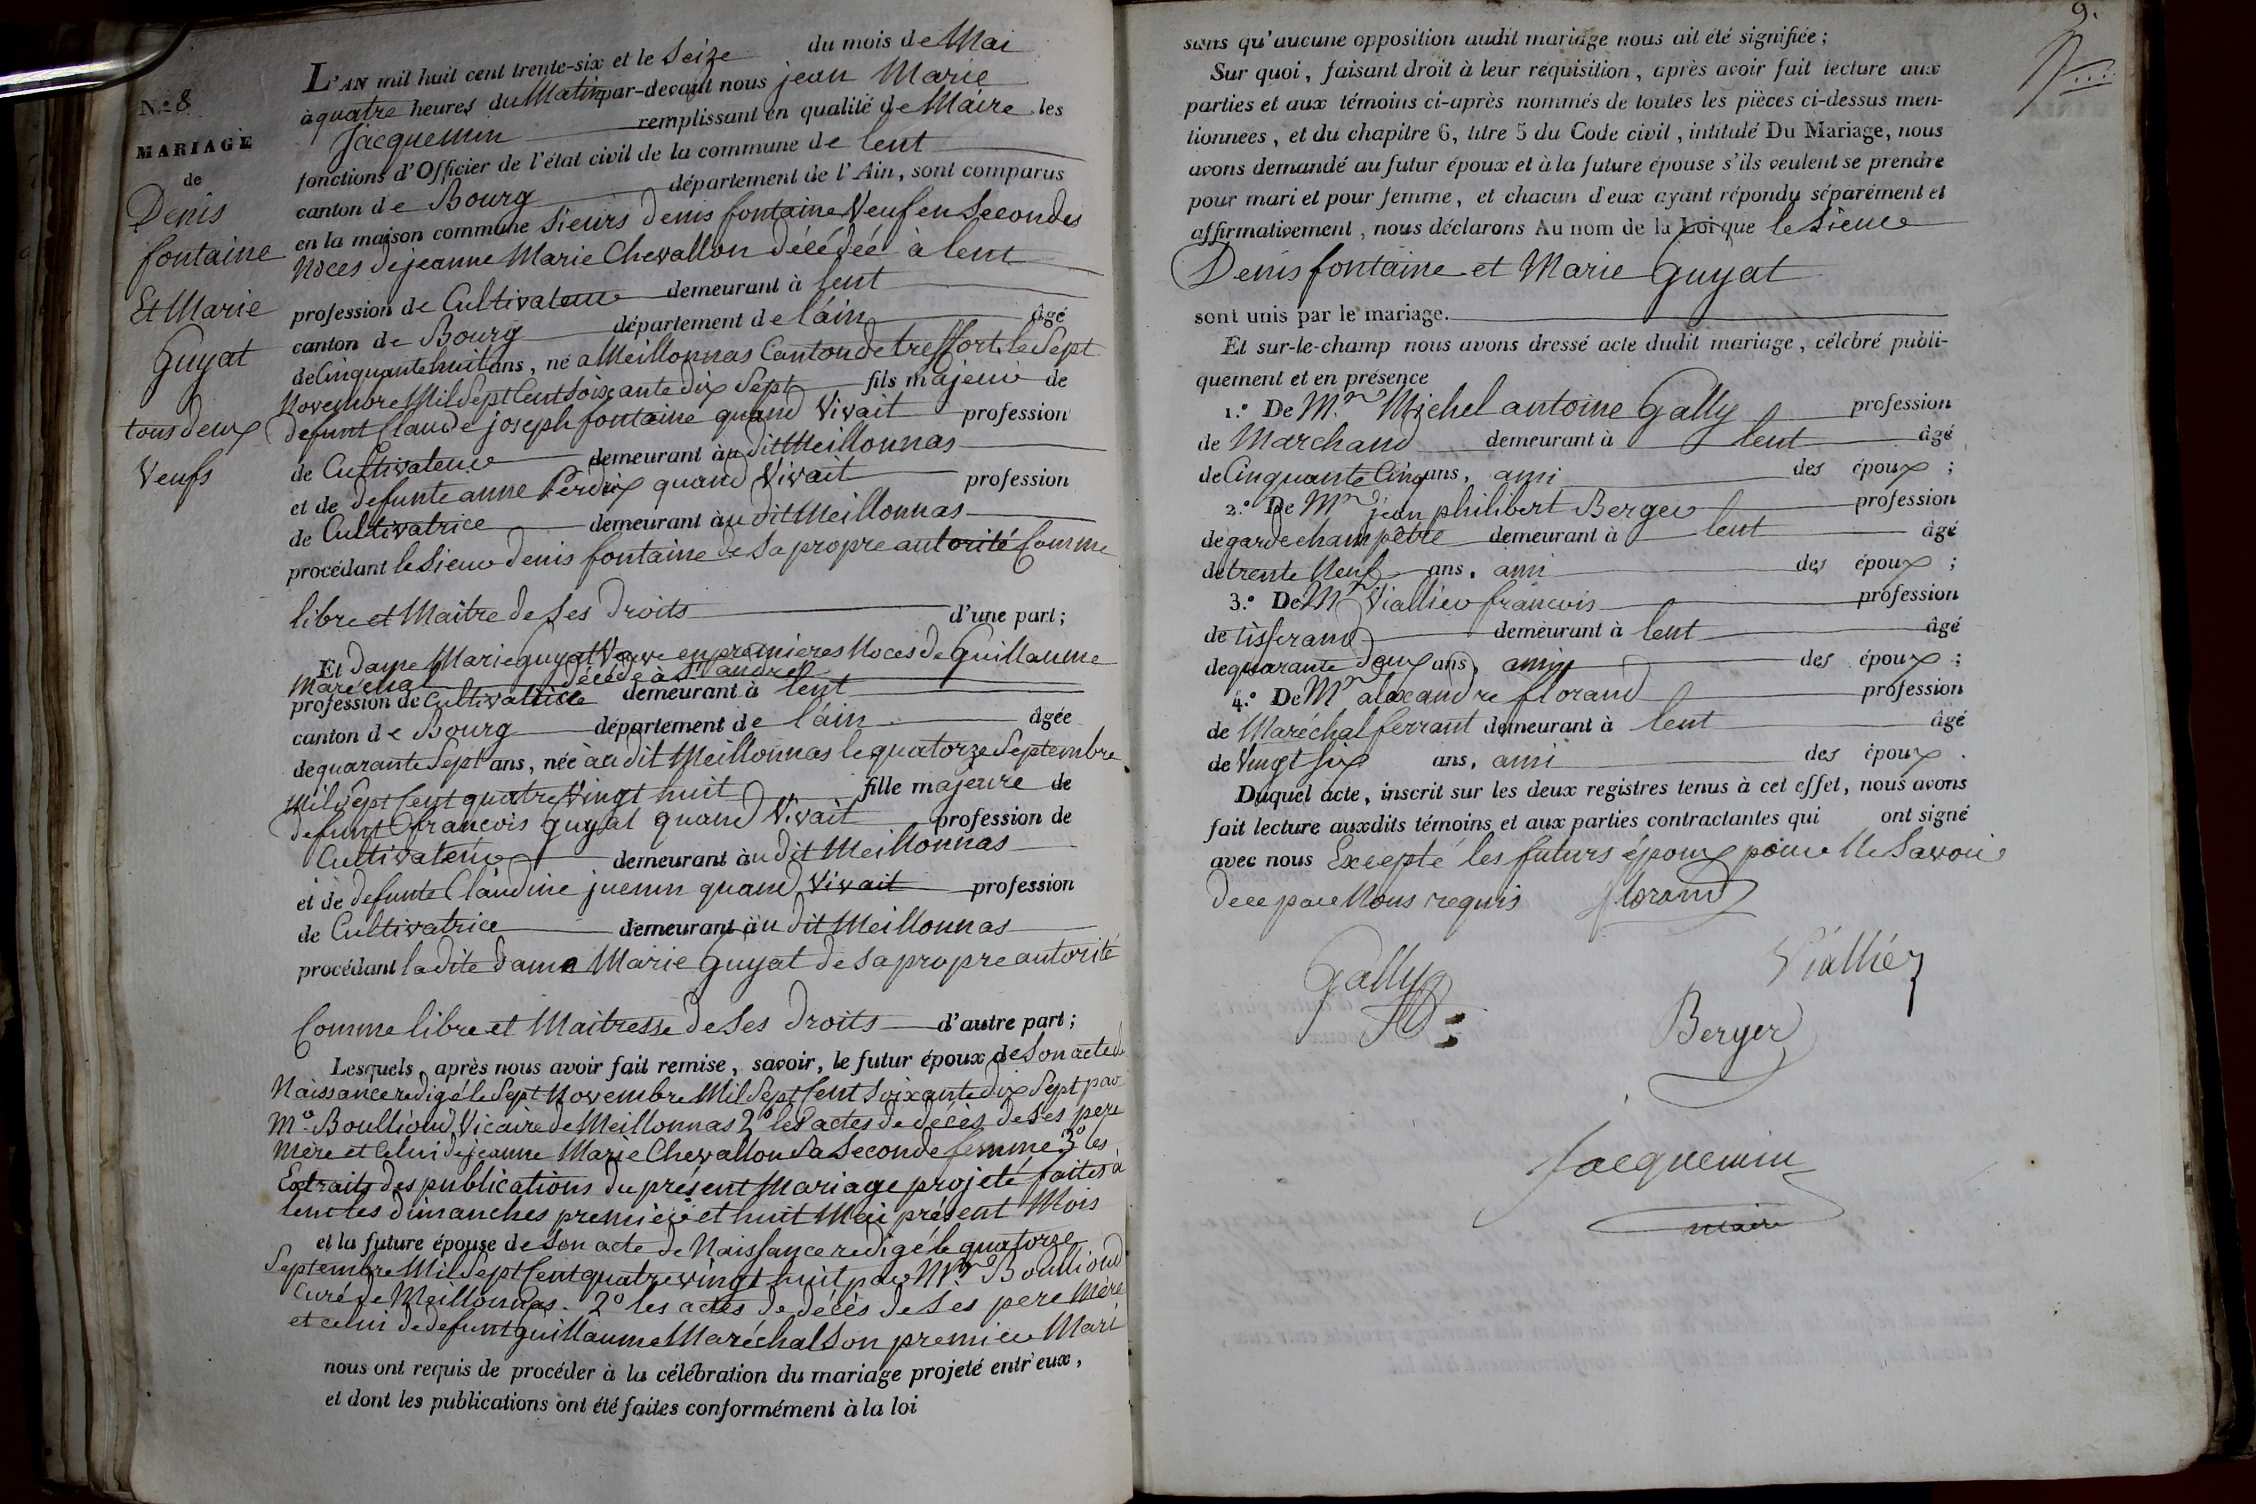 N.o 8
MARIAGE
de
Denis
fontaine
Et Marie
Guyat
tous deux
Veufs
L'AN mil huit cent trente-six et le Seize du mois de Mai
à quatre heures du Matin par-devant nous jean Marie
Jacquemin remplissant en qualité de Maire les
fonctions d'Officier de l'état civil de la commune de lent
canton de Bourg département de l'Ain, sont comparus
en la maison commune Sieurs denis fontaine Veuf en Secondes
Noces de jeanne Marie Chevallon décédée à lent
profession de Cultivateur demeurant à lent
canton de Bourg département de l'áin âgé
de Cinquante huit ans, né à Meillonnas Canton de treffort, le Sept
Novembre Mil Sept Cent Soixante dix Sept fils majeur de
defunt Claude joseph fontaine quand Vivait profession
de Cultivateur demeurant àu dit Meillonnas
et de defunte anne Perdrix quand Vivait profession
de Cultivatrice demeurant àu dit Meillonnas
procédant le Sieur denis fontaine de Sa propre autorité Comme
libre et Maitre de Ses Droits d'une part;
Et Dame Marie guyat Veuve en premieres Noces de Guillaume
Maréchal décédé à St andré
profession de Cultivatrice demeurant à lent
canton de Bourg département de l'áin âgée
de quarante Sept ans, née àu dit Meillonnas le quatorze Septembre
Mil Sept Cent quatre Vingt huit fille majeure de
defunt francois guyat quand Vivait profession de
Cultivateur demeurant àu dit Meillonnas
et de defunte Claudine juenin quand Vivait profession
de Cultivatrice demeurant àu dit Meillonnas
procédant la dite Dame Marie guyat de Sa propre autorité
Comme libre et Maitresse de Ses Droits d'autre part;
Lesquels, après nous avoir fait remise, savoir, le futur époux de Son acte de
Naissance redigé le Sept Novembre Mil Sept Cent Soixante dix Sept par
Mo. Boullioud Vicaire de Meillonnas 2o les actes de décès de Ses pere
Mère et Celui de jeanne Marie Chevallon Sa Seconde femme 3o les
Extraits des publications du présent Mariage projeté faites à
lent les dimanches premier et huit Mai présent Mois
et la future épouse de Son acte de Naissance redigé le quatorze
Septembre Mil Sept Cent quatre vingt huit par Mr. Boullioud
Curé de Meillonnas. 2o les actes de décès de Ses pere Mère
et celui de defunt guillaume Maréchal Son premier Mari
nous ont requis de procéder à la célébration du mariage projeté entr'eux,
et dont les publications ont été faites conformément à la loi
9.
sans qu'aucune opposition audit mariage nous ait été signifiée;
Sur quoi, faisant droit à leur réquisition, après avoir fait lecture aux
parties et aux témoins ci-après nommés de toutes les pièces ci-dessus men-
tionnées, et du chapitre 6, titre 5 du Code civil, intitulé Du Mariage, nous
avons demandé au futur époux et à la future épouse s'ils veulent se prendre
pour mari et pour femme, et chacun d'eux ayant répondu séparément et
affirmativement, nous déclarons Au nom de la Loi que le Sieur
Denis fontaine et Marie Guyat
sont unis par le mariage.
Et sur-le-champ nous avons dressé acte dudit mariage, célébré publi-
quement et en présence
1.o De M.r Michel antoine Gally profession
de Marchand demeurant à lent âgé
de Cinquante Cinq ans, ami des époux;
2.o De Mr jean philibert Berger profession
de garde champêtre demeurant à lent âgé
de trente Neuf ans, ami des époux;
3.o De Mr Viallier francois profession
de tisserand demeurant à lent âgé
de quarante deux ans, ami des époux;
4.o De Mr alexandre florand profession
de Maréchal ferrant demeurant à lent âgé
de Vingt Six ans, ami des époux.
Duquel acte, inscrit sur les deux registres tenus à cet effet, nous avons
fait lecture auxdits témoins et aux parties contractantes qui ont signé
avec nous Excepté les futurs époux pour Ne Savoir
de ce par Nous requis florand
Gally
Viallier
Berger
Jacquemin
maire